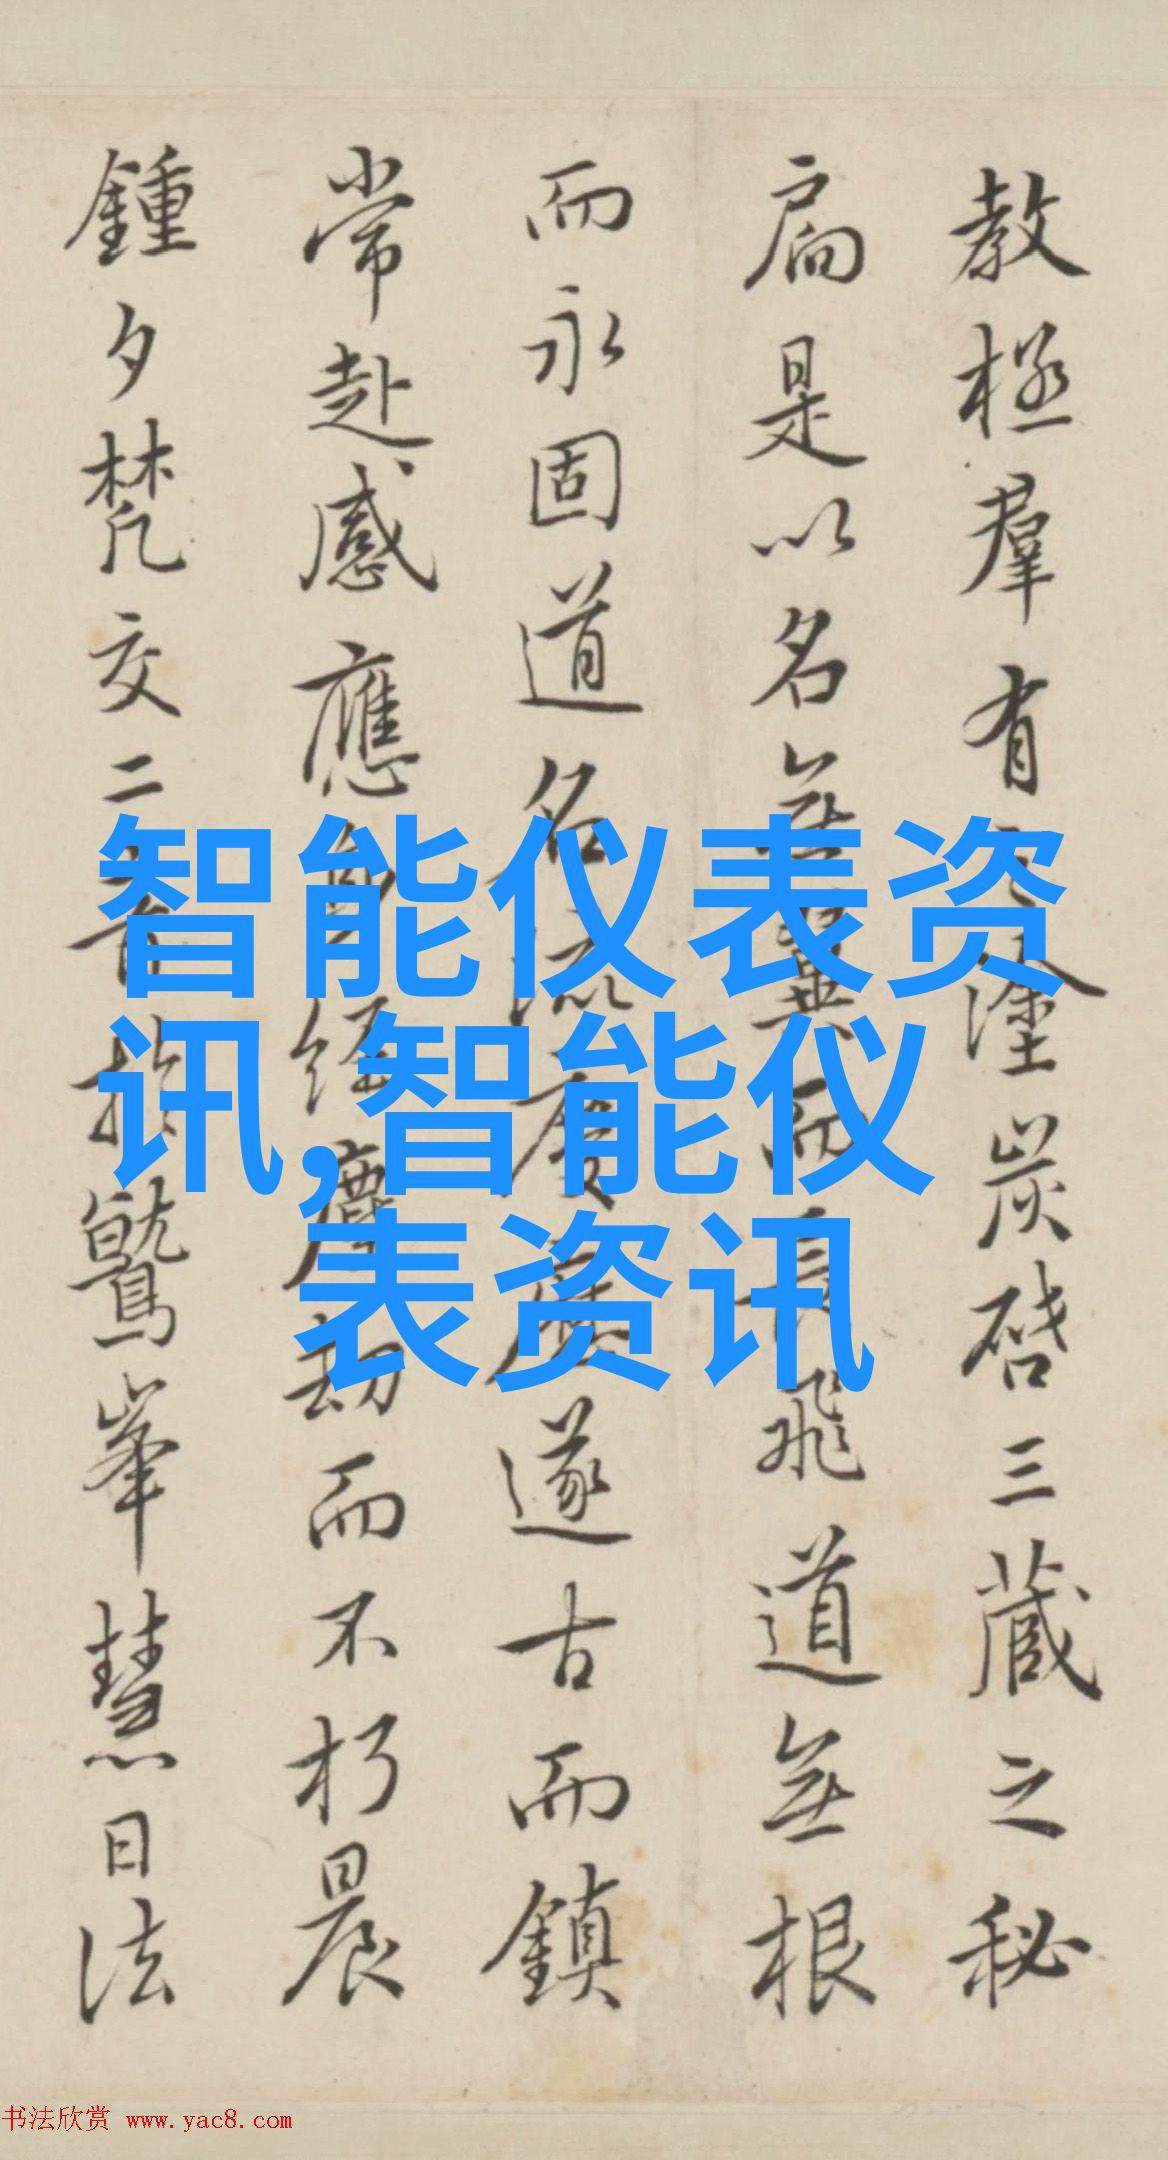 教極羣有之塗炭啓三藏之秘
扃是以名無翼而長飛道無根
而永固道名流慶歷遂古而鎮
常赴感應身經塵劫而不朽晨
鍾夕梵交二音於鷲峯慧日法
智能仪表资
讯,智能仪
表资讯
书法欣赏 www.yac8.com